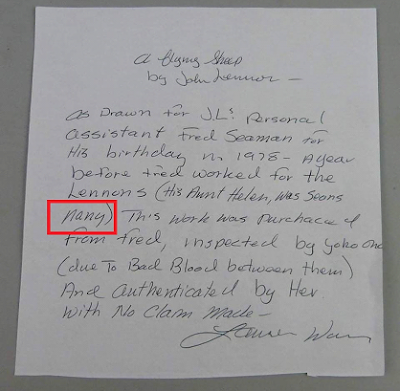 A flying Sheep
by John Lennon —
As Drawn for J.L.s Personal
Assistant Fred Seaman for
His birthday in 1978 - A year
before Fred worked for the
Lennons (His Aunt Helen, was Seans
Nany) This work was Purchaced
from Fred, inspected by Yoko Ono
(due To Bad Blood between them)
And Authenticated by Her
with No Claim Made -